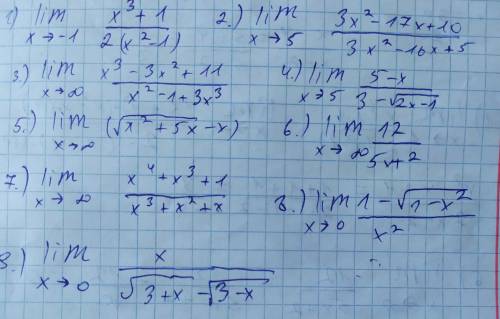 1) lim x→-1 (x³+1)/(2(x²-1)) 2.) lim x→5 (3x²-17x+10)/(3x²-16x+5)
3.) lim x→∞ (x³-3x²+11)/(x²-1+3x³) 4.) lim x→5 (5-x)/(3-√(2x-1))
5.) lim x→∞ (√(x²+5x)-x) 6.) lim x→∞ 12/(5x+2)
7.) lim x→∞ (x⁴+x³+1)/(x³+x²+x) 8.) lim x→0 (1-√(1-x²))/x²
9.) lim x→0 x/(√(3+x)-√(3-x))